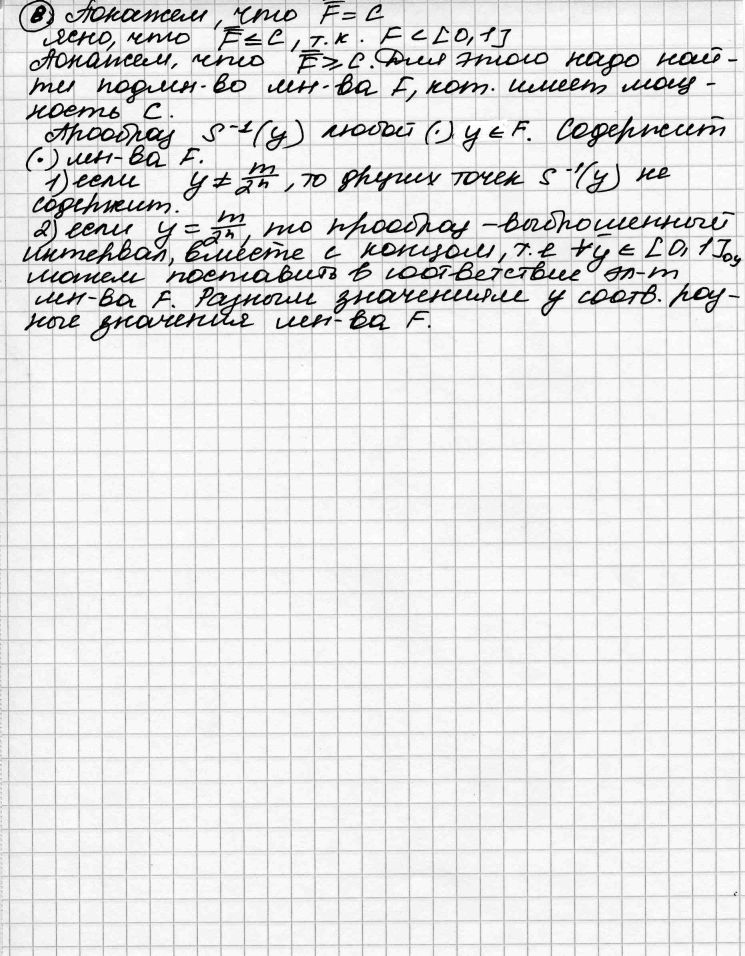 в) Докажем, что F̿ = C
Ясно, что F̿ ≤ C, т.к. F ⊂ [0,1]
Докажем, что F̿ ≥ C. Для этого надо най-
ти подмн-во мн-ва F, кот. имеет мощ-
ность C.
Прообраз S⁻¹(y) любой (·) y ∈ F. Содержит
(·) мн-ва F.
1) если y ≠ m/2ⁿ, то других точек S⁻¹(y) не
содержит.
2) если y = m/2ⁿ, то прообраз – выброшенный
интервал, вместе с концом, т.е ∀y ∈ [0,1]oy
можем поставить в соответствие эл-т
мн-ва F. Разным значениям y соотв. раз-
ные значения мн-ва F.